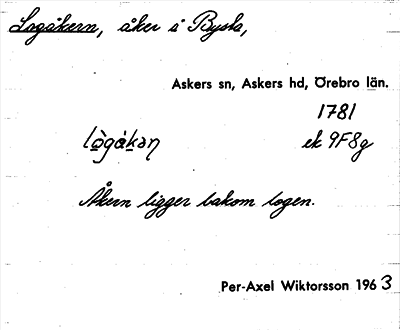 Logåkern, åker i Bysta,
Askers sn, Askers hd, Örebro län.
1781
lògåkəɳ ek 9F8g
Åkern ligger bakom logen.
Per-Axel Wiktorsson 1963